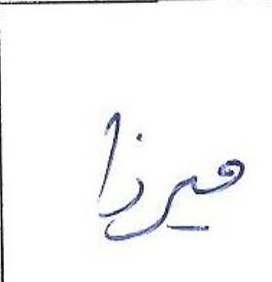 ميرزا